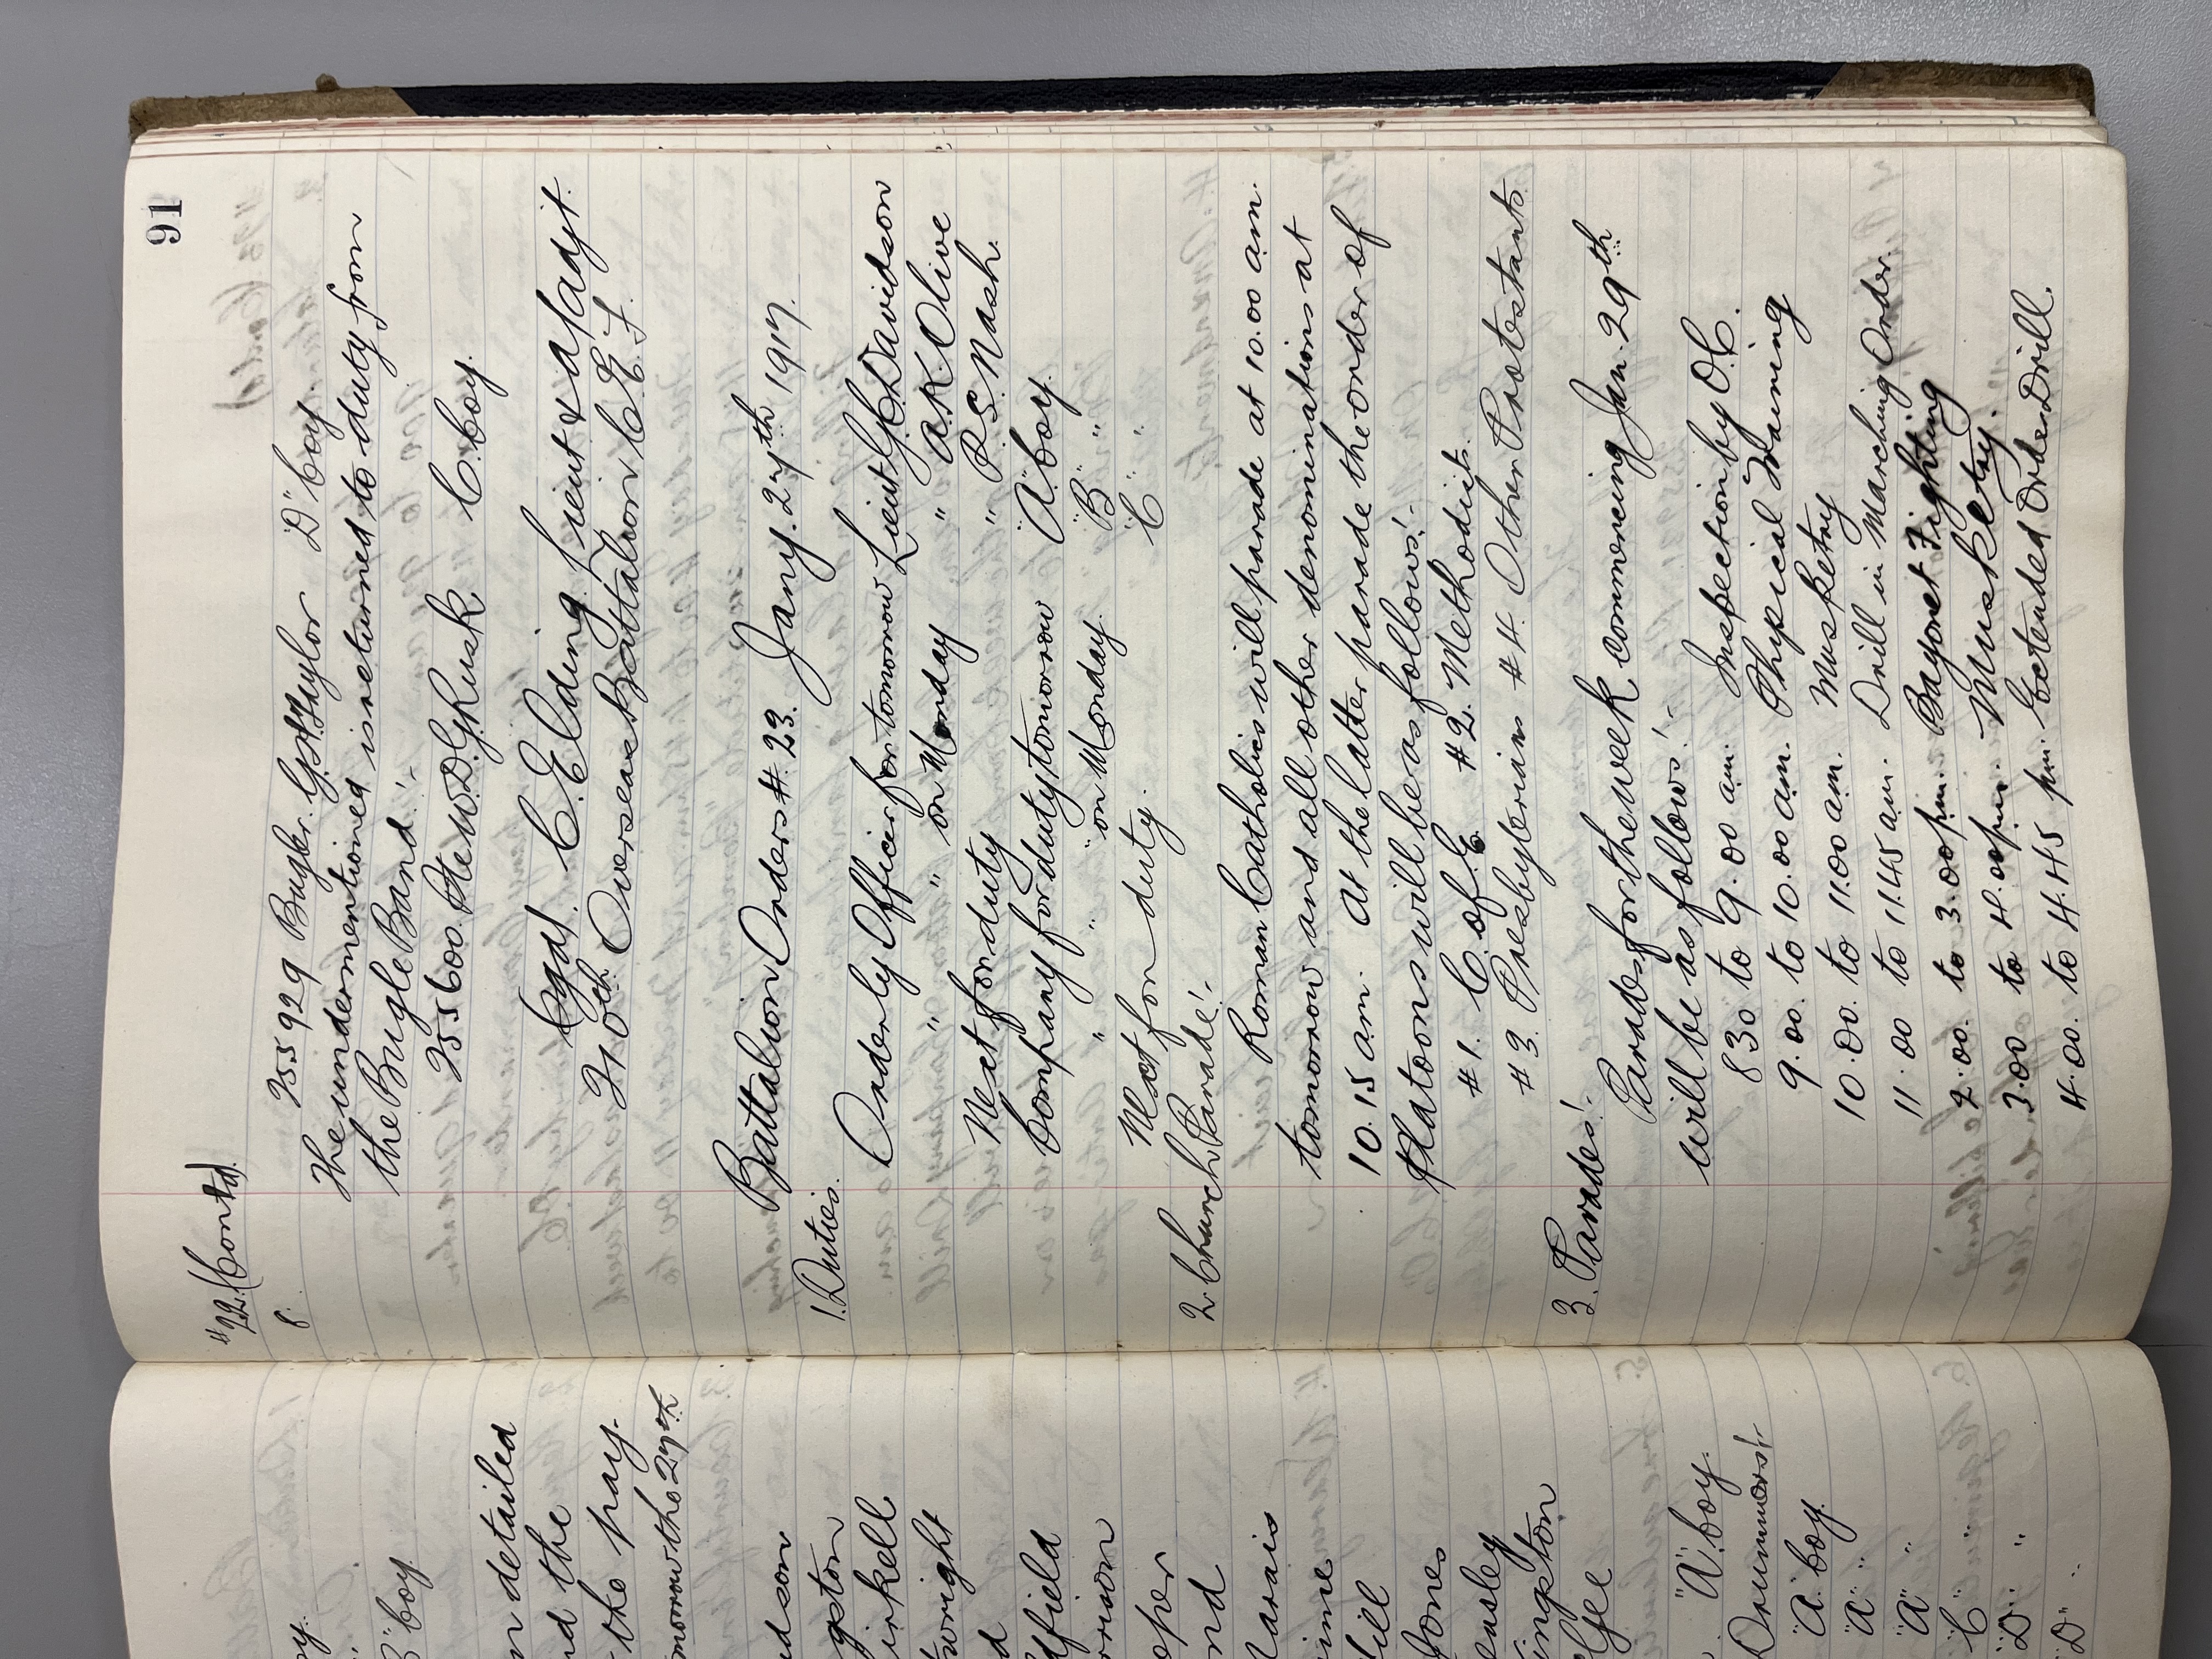 oy.
"
B" Coy
n detailed
nd the
the pay.
morrow the 27th
dson
gston
irkell
twright
d
dfield
rrison
oper
nd
larais
ime
Hill
Jones
easley
ington
lfee
"A" Coy.
Drummers:-
"A" Coy
"A" "
"A" "
"C" "
"D" "
"D" "
91
#22 (Contd)
8. 255929 Bugler. G.H. Taylor "D" Coy.
The undermentioned is returned to duty from
the Bugle Band:-
255600. Pte W.D.G. Rusk C. Coy.
Sgd. C. Elding Lieut & a/adjt.
210th Overseas Battalion C.E.F.
Battalion Orders #.23. Jany. 27th 1917.
1. Duties.
Orderly Officer for tomorrow Lieut G.C. Davidson
" " on Monday " A.K. Olive
Next for duty " P.S. Nash.
Company for duty tomorrow "A" Coy.
" " " on Monday. "B" "
Next for duty. "C" "
2. Church Parade:-
Roman Catholics will parade at 10.00 am.
tomorrow and all other denominations at
10.15 am. At the latter parade the order of
Platoons will be as follows:-
#1. C. of E. #2. Methodist.
#3. Presbyterian #4. Other Protestants
3. Parades:-
Parades for the week commencing Jan. 29th
will be as follows:-
8.30 to 9.00 am. Inspection by O.C.
9.00. to 10.00 am. Physical Training
10.00. to 11.00 am. Musketry
11.00 to 11.45 am. Drill in Marching Order.
2.00. to 3.00 pm. Bayonet Fighting
3.00 to 4.00 pm. Musketry.
4.00. to 4.45 pm. Extended Order Drill.